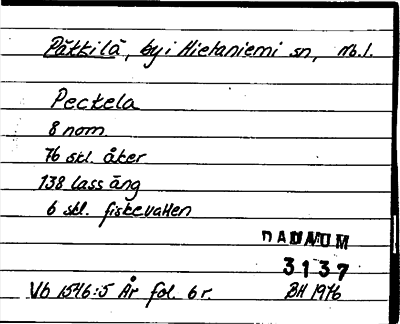 Päkkilä, by i Hietaniemi sn, Nb. l.
Peckela
8 nom.
76 skl. åker
138 lass äng
6 skl. fiskevatten
DAUNUM
3137
Vb 1546:5 År fol. 6 r.
BH 1976